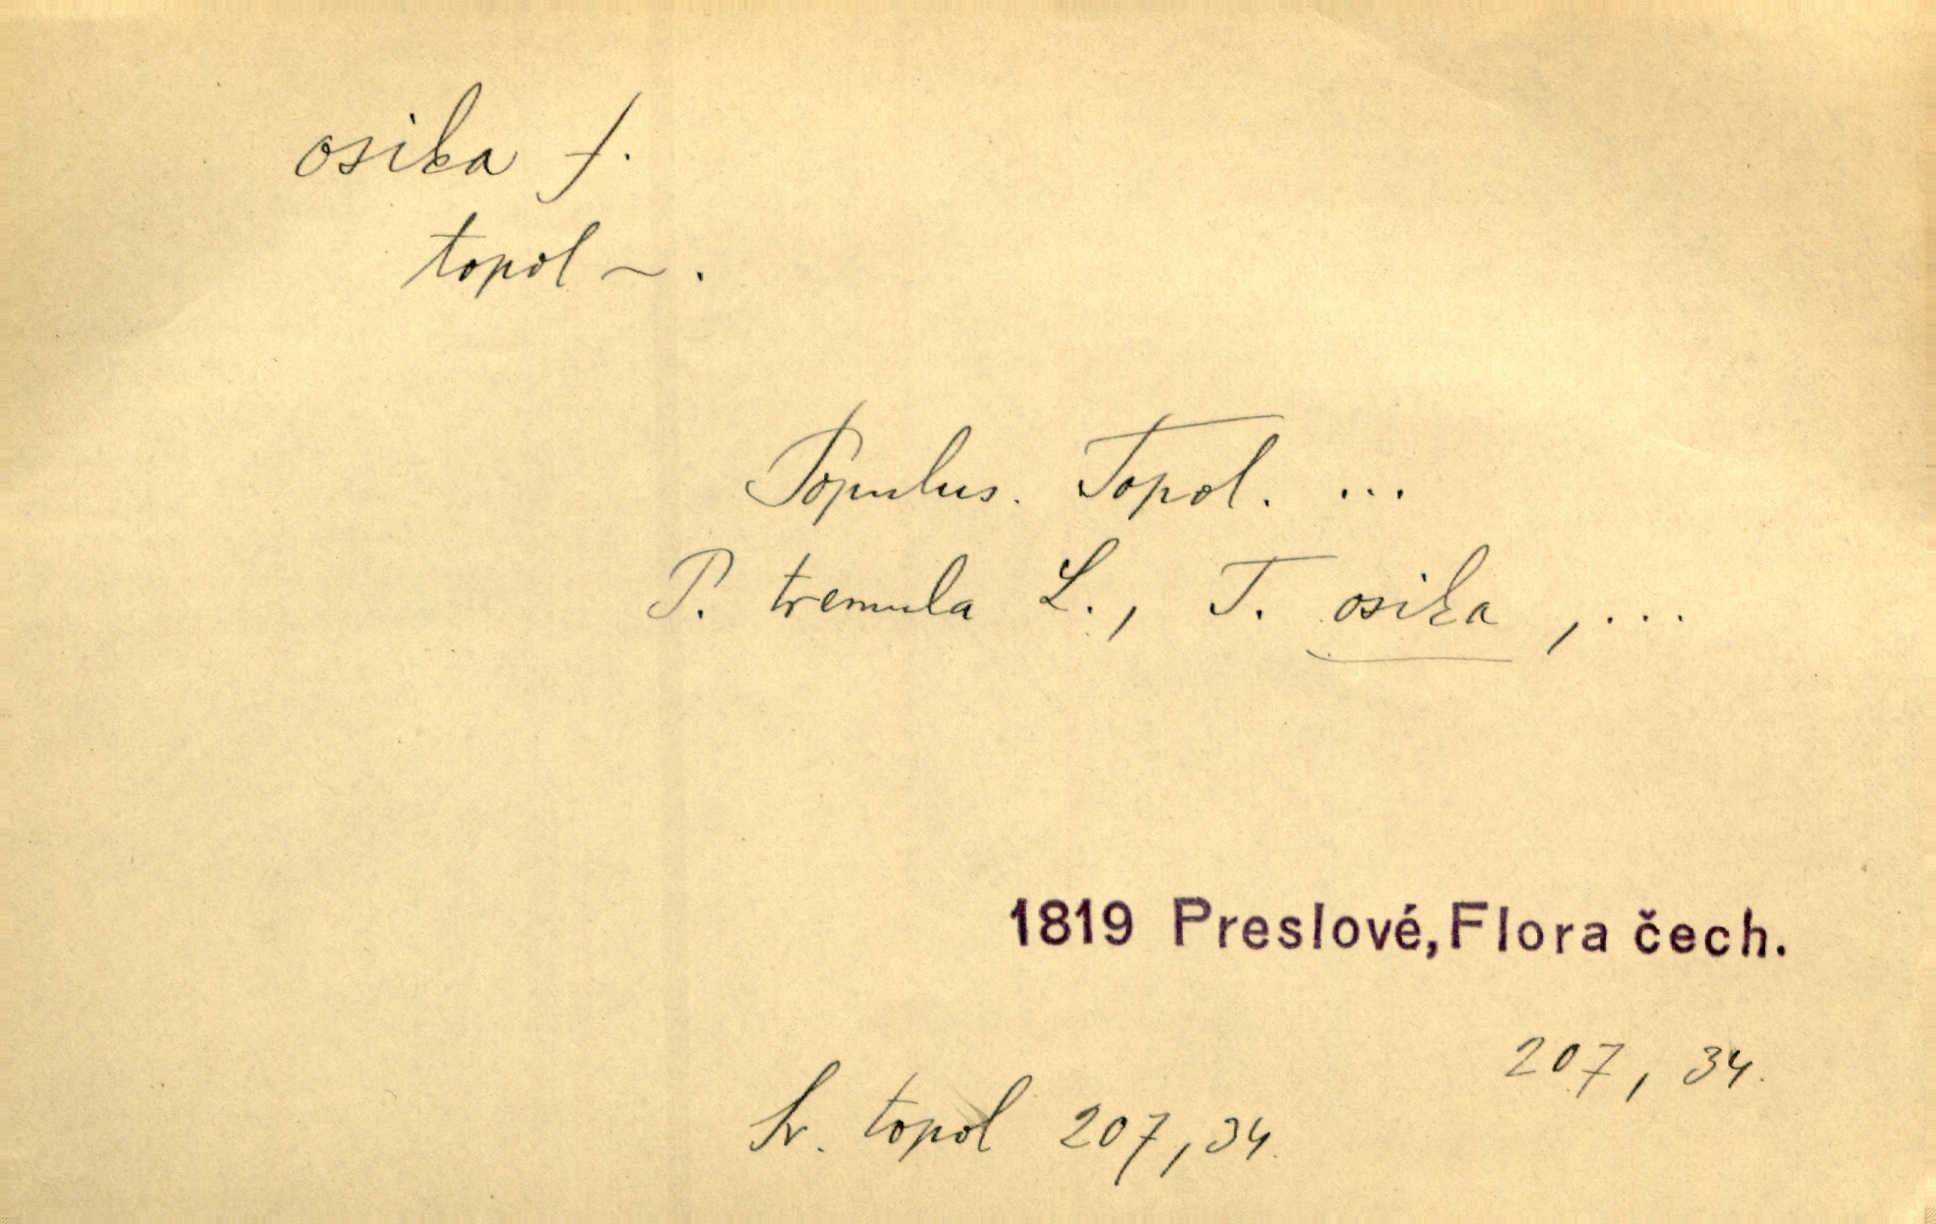 osika f.
topol ~.
Populus. Topol. ...
P. tremula L., T. osika, ...
1819 Preslové, Flora čech.
207, 34.
Sr. topol 207, 34.